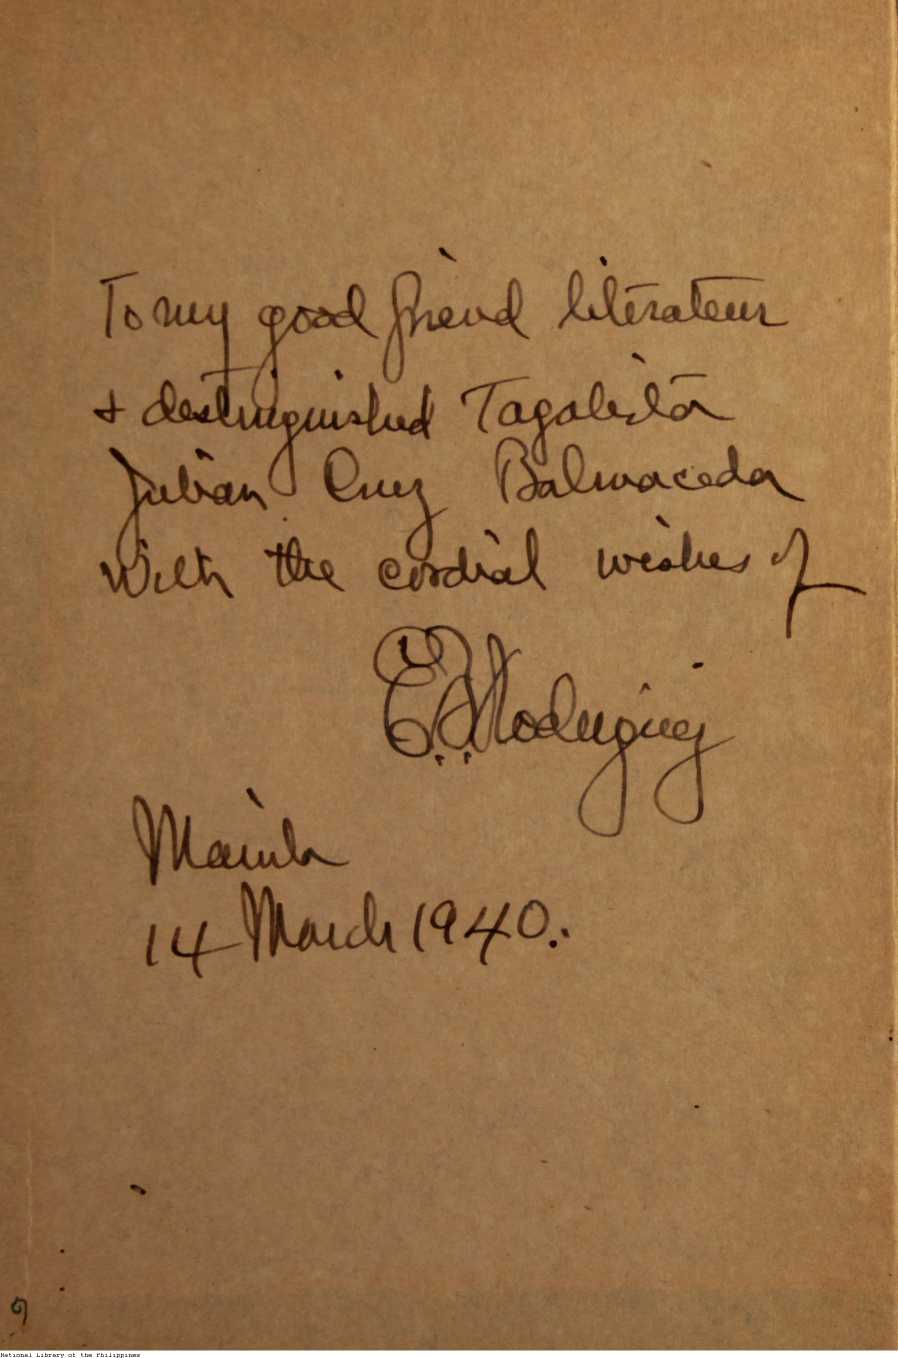 To my good friend literateur
& distinguished Tagalista
Julian Cruz Balmaceda
With the cordial wishes of
E. Rodriguez
Manila
14 March 1940.
National Library of the Philippines